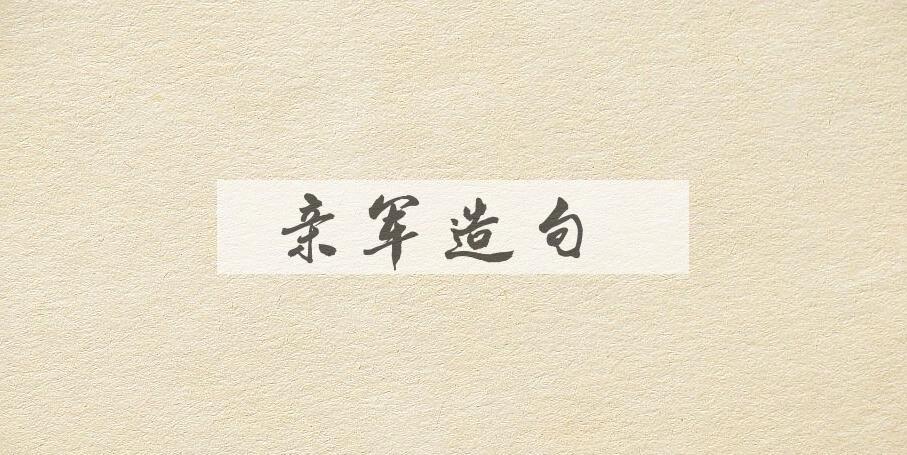 亲军造句